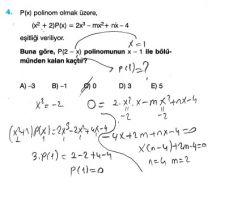 4. P(x) polinom olmak üzere,
(x² + 2)P(x) = 2x³ – mx² + nx – 4
eşitliği veriliyor.
Buna göre, P(2 – x) polinomunun x – 1 ile bölü-
münden kalan kaçtır?
x=1
P(1)=?
A) –3 B) –1 C) 0 D) 3 E) 5
x²=-2
0=2.x².x-mx²+nx-4
-2 -2
-4x+2m+nx-4=0
x(n-4)+2m-4=0
n=4 m=2
P(x)=2x³-2x²+4x-4
3.P(1)=2-2+4-4
P(1)=0